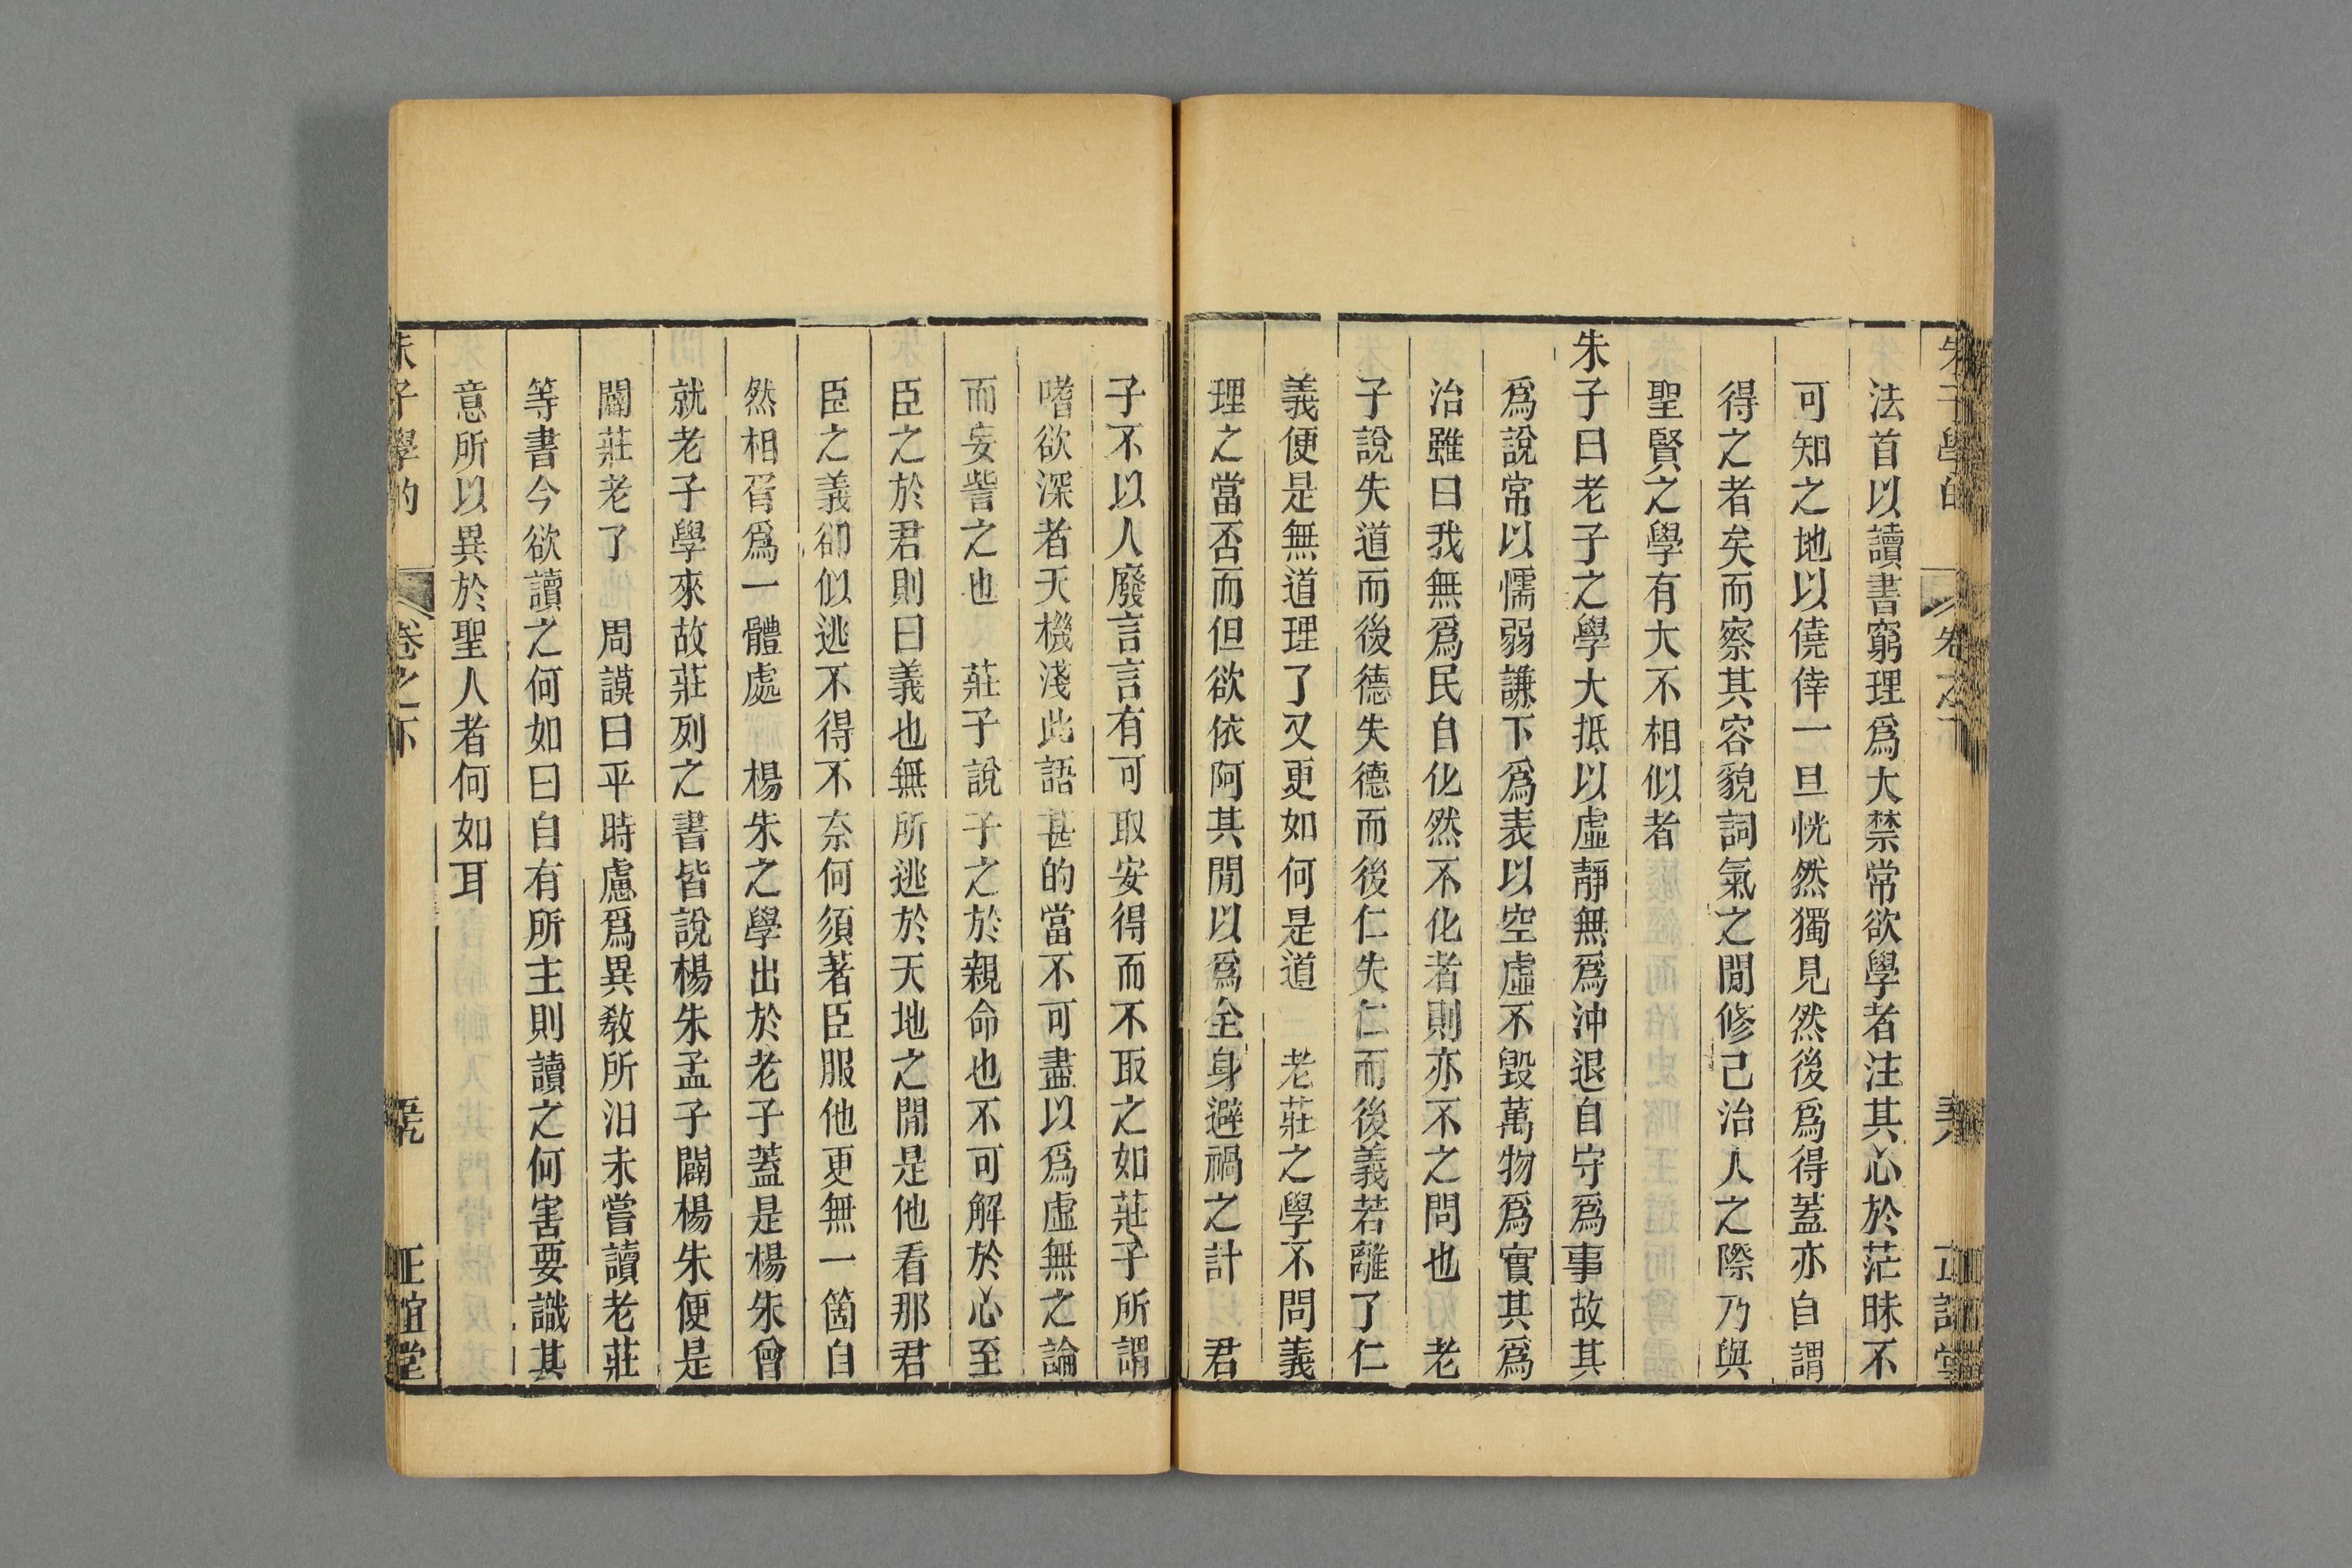 法首以讀書窮理爲大禁常欲學者注其心於茫昧不
可知之地以僥倖一旦恍然獨見然後爲得蓋亦自謂
得之者矣而察其容貌詞氣之閒修己治人之際乃與
聖賢之學有大不相似者
朱子曰老子之學大抵以虛靜無爲沖退自守爲事故其
爲說常以懦弱謙下爲表以空虛不毀萬物爲實其爲
治雖曰我無爲民自化然不化者則亦不之問也　老
子說失道而後德失德而後仁失仁而後義若離了仁
義便是無道理了又更如何是道　老莊之學不問義
理之當否而但欲依阿其閒以爲全身避禍之計　君
子不以人廢言言有可取安得而不取之如莊子所謂
嗜欲深者天機淺此語甚的當不可盡以爲虛無之論
而妄訾之也　莊子說子之於親命也不可解於心至
臣之於君則曰義也無所逃於天地之閒是他看那君
臣之義卻似逃不得不奈何須著臣服他更無一箇自
然相胥爲一體處　楊朱之學出於老子蓋是楊朱曾
就老子學來故莊列之書皆說楊朱孟子闢楊朱便是
闢莊老了　周謨曰平時慮爲異敎所汨未嘗讀老莊
等書今欲讀之何如曰自有所主則讀之何害要識其
意所以異於聖人者何如耳
朱子學的　卷之下　正誼堂